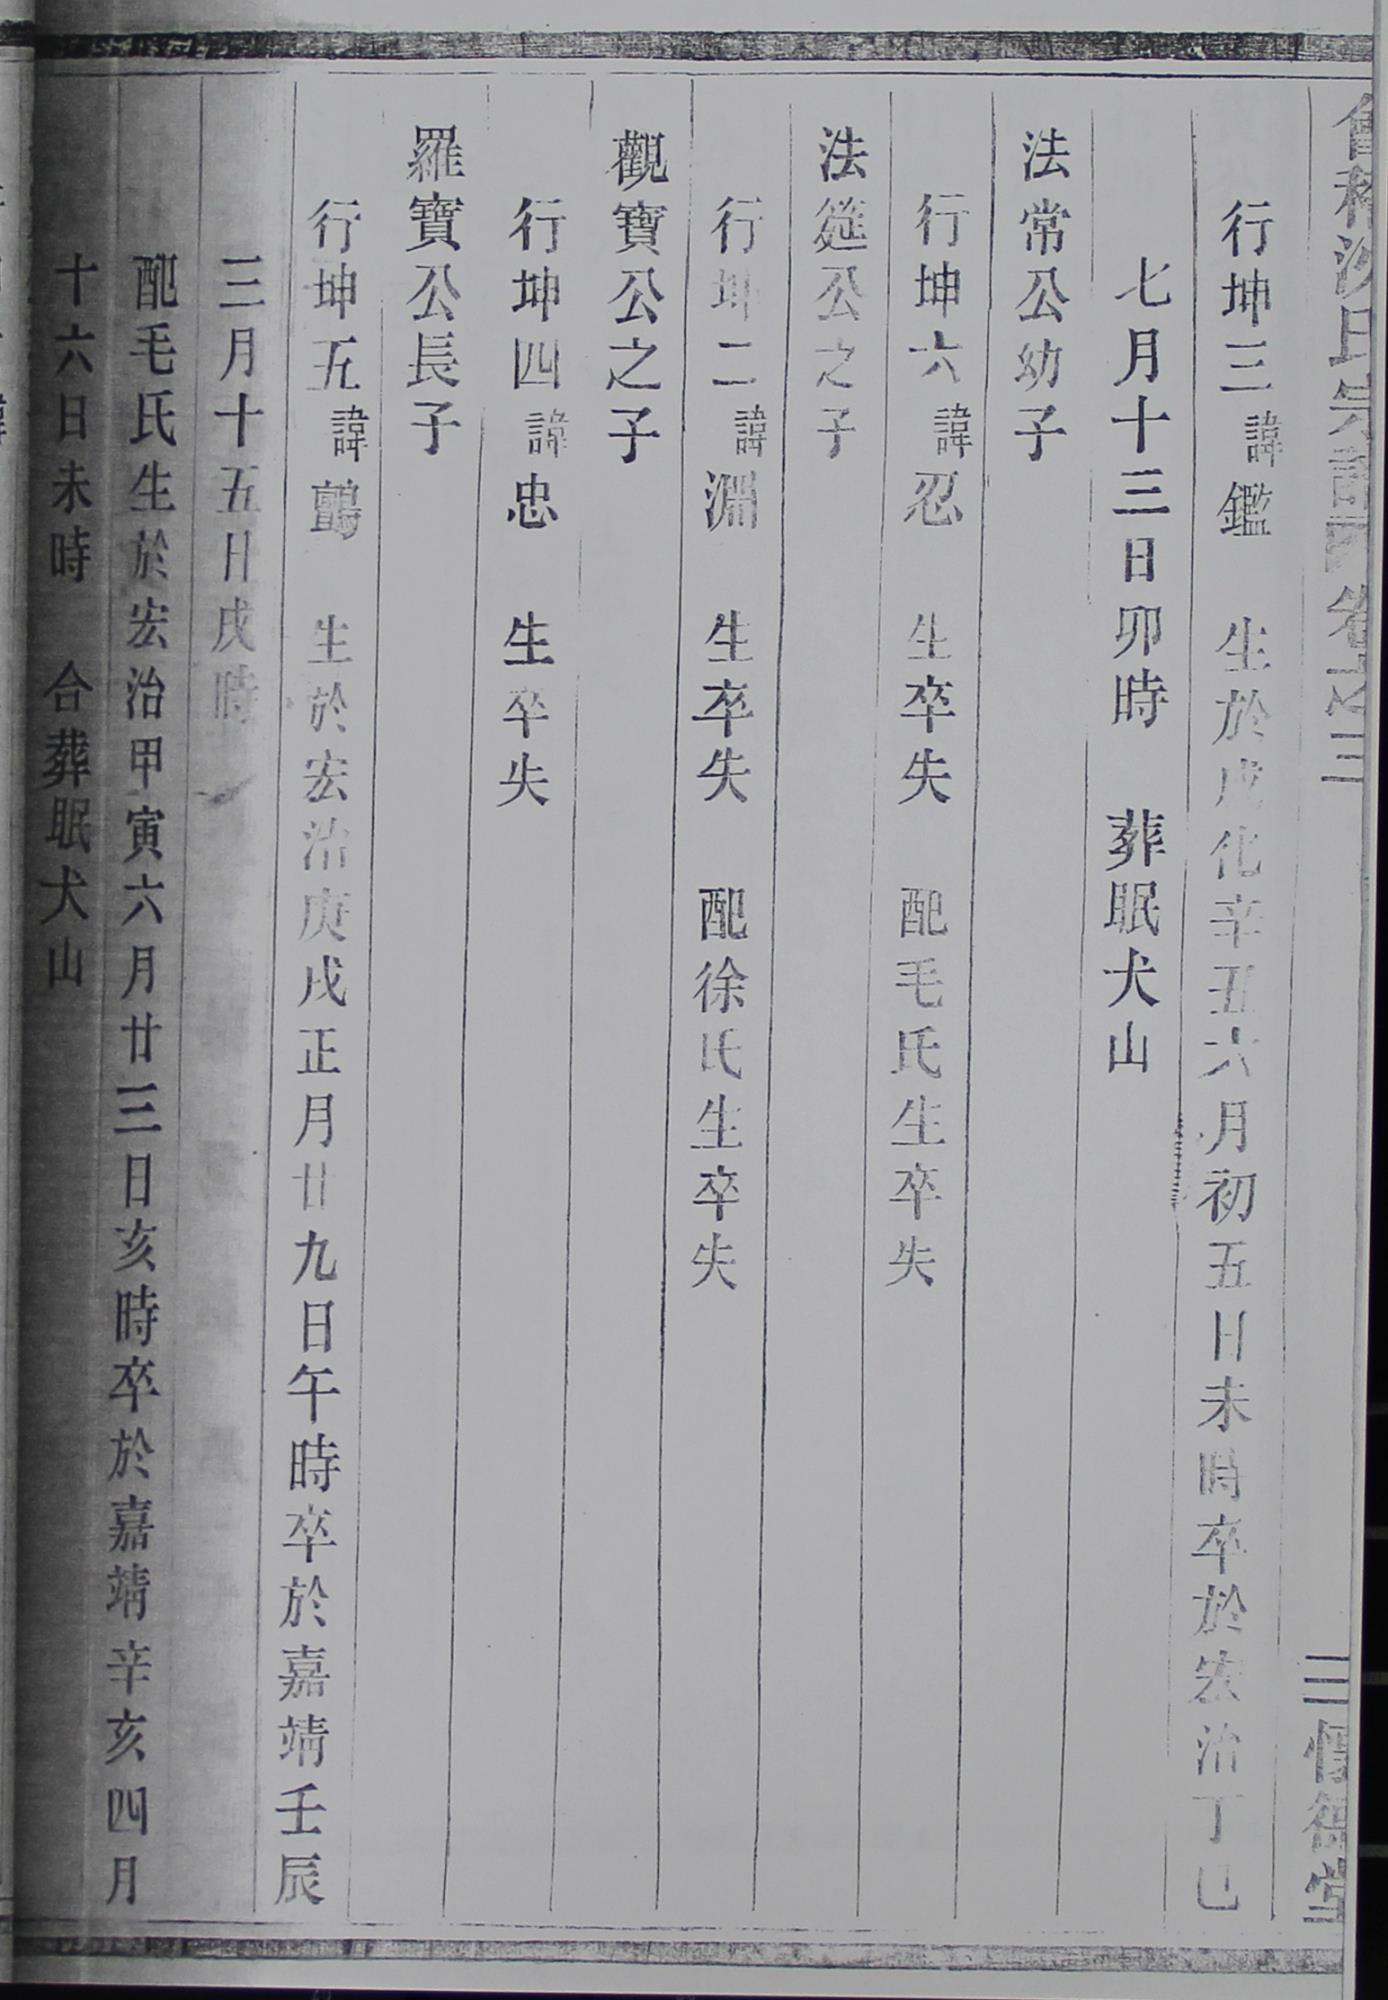 會稽沈氏宗譜 卷之三 三
行坤三諱鑑 生於成化辛丑六月初五日未時卒於宏治丁巳
七月十三日卯時 葬眠犬山
法常公幼子
行坤六諱忍 生卒失 配毛氏生卒失
法筵公之子
行坤二諱淵 生卒失 配徐氏生卒失
觀寶公之子
行坤四諱忠 生卒失
羅寶公長子
行坤五諱鸇 生於宏治庚戌正月廿九日午時卒於嘉靖壬辰
三月十五日戌時
配毛氏生於宏治甲寅六月廿三日亥時卒於嘉靖辛亥四月
十六日未時 合葬眠犬山